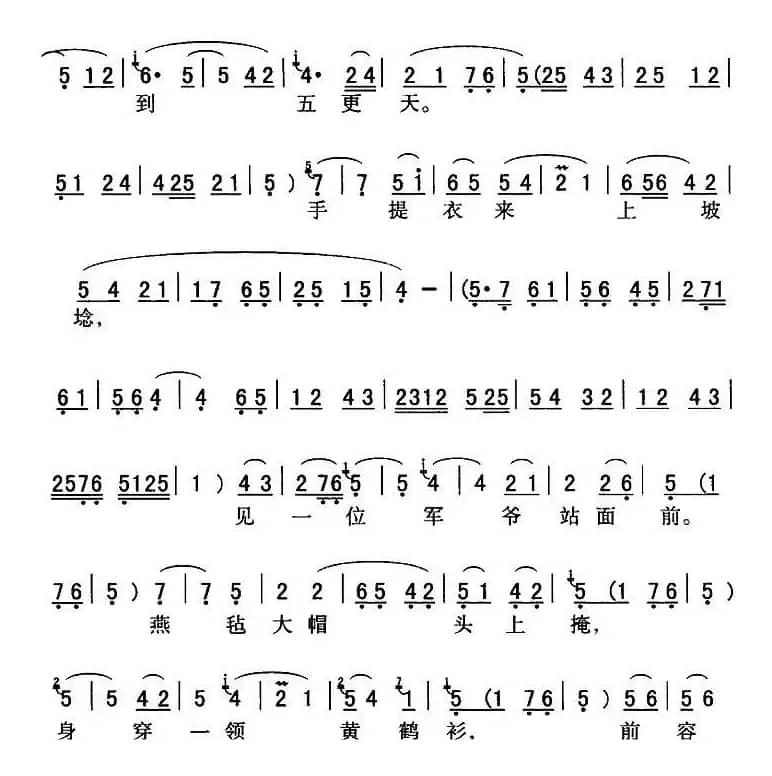 5 1 2 | 6· 5 | 5 4 2 | 4· 2 4 | 2 1 7 6 | 5 (2 5 4 3 | 2 5 1 2 |
到 五 更 天。
5 1 2 4 | 4 2 5 2 1 | 5 ) 7 | 7 5 i | 6 5 5 4 | 2 1 | 6 5 6 4 2 |
手 提 衣 来 上 坡
5 4 2 1 | 1 7 6 5 | 2 5 1 5 | 4 － | (5· 7 6 1 | 5 6 4 5 | 2 7 1
埝，
6 1 | 5 6 4 | 4 6 5 | 1 2 4 3 | 2 3 1 2 5 2 5 | 5 4 3 2 | 1 2 4 3 |
2 5 7 6 5 1 2 5 | 1 ) 4 3 | 2 7 6 5 | 5 4 | 4 2 1 | 2 2 6 | 5 (1
见 一 位 军 爷 站 面 前。
7 6 | 5 ) 7 | 7 5 | 2 2 | 6 5 4 2 | 5 1 4 2 | 5 (1 7 6 | 5 )
燕 毡 大 帽 头 上 掩，
5 | 5 4 2 | 5 4 | 2 1 | 5 4 1 | 5 (1 7 6 | 5 ) 5 6 | 5 6
身 穿 一 领 黄 鹤 衫， 前 容